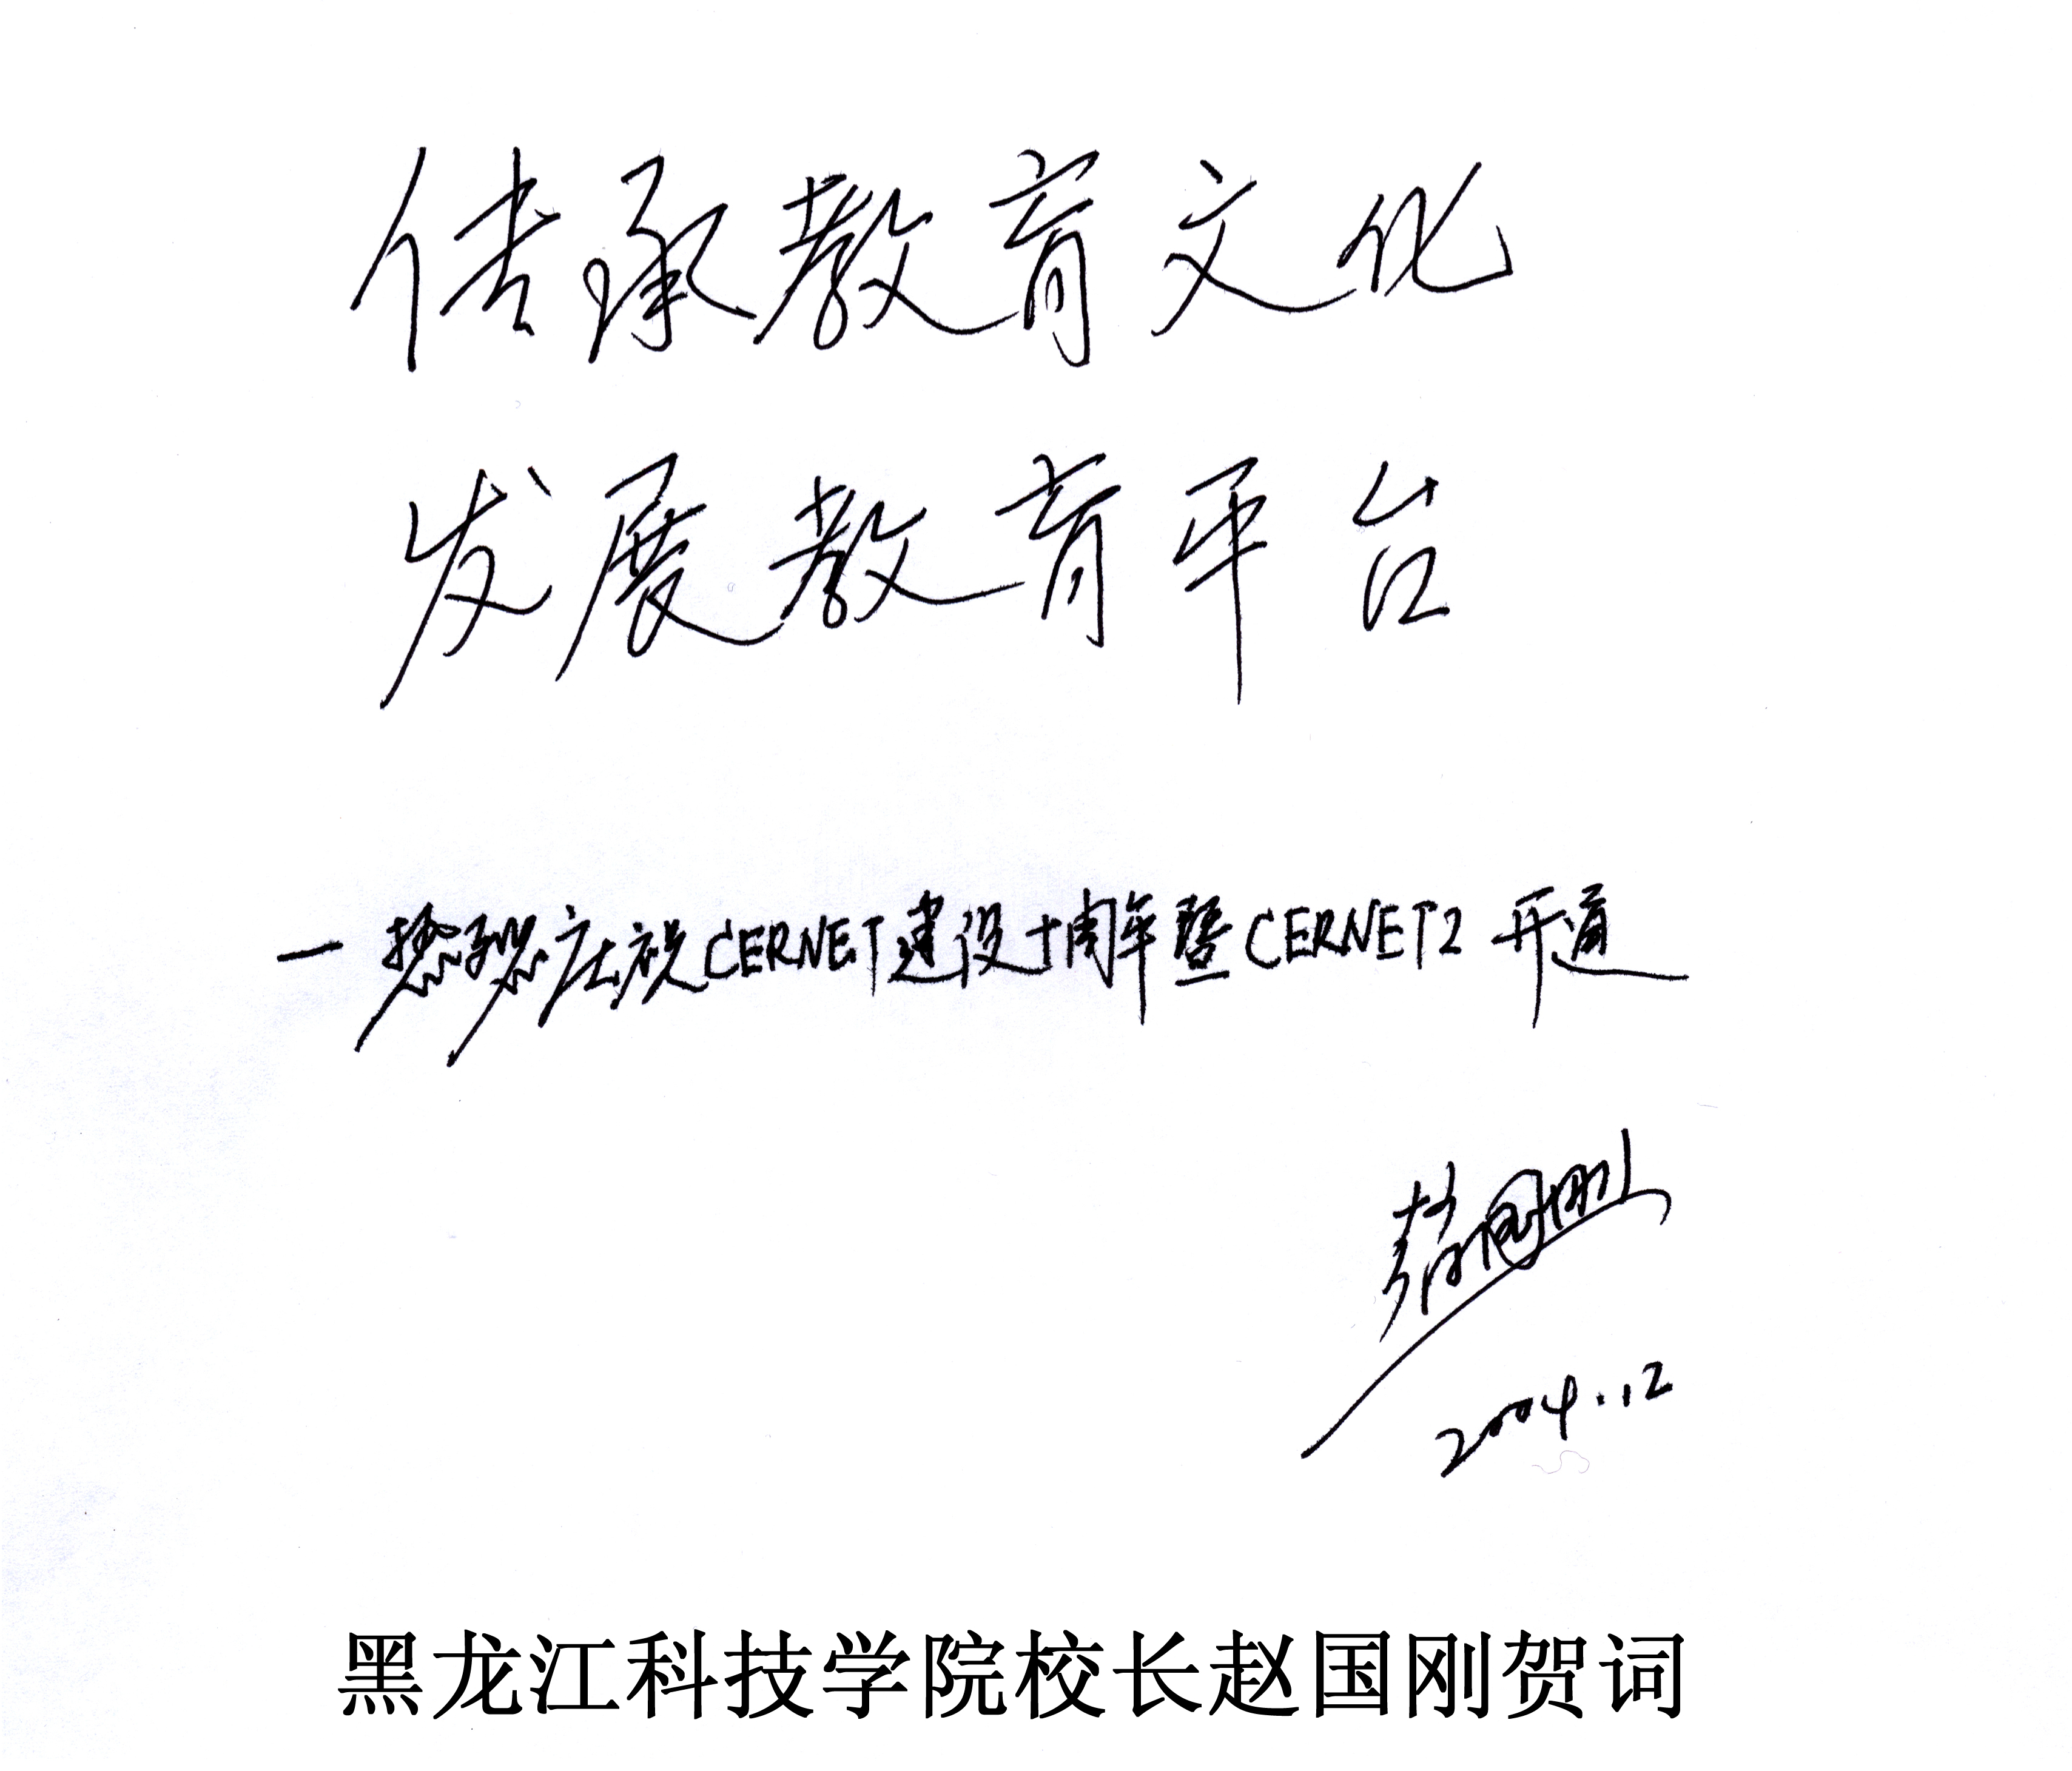 传承教育文化
发展教育平台
一热烈庆祝CERNET建设十周年暨CERNET2 开通
赵国刚
2004.12
黑龙江科技学院校长赵国刚贺词